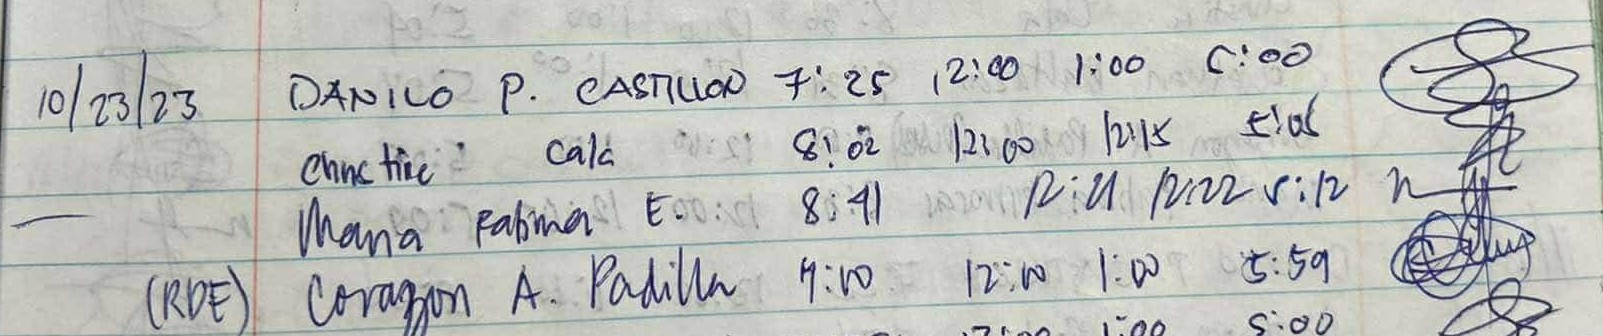 10/23/23 DANILO P. CASTILLON 7:25 12:00 1:00 5:00
Cala 8:02 12:00 12:15 5:05
— Maria Fatima E. 8:41 12:21 12:22 5:12
(RDE) Corazon A. Padilla 7:00 12:00 1:00 5:59
1:00 5:00